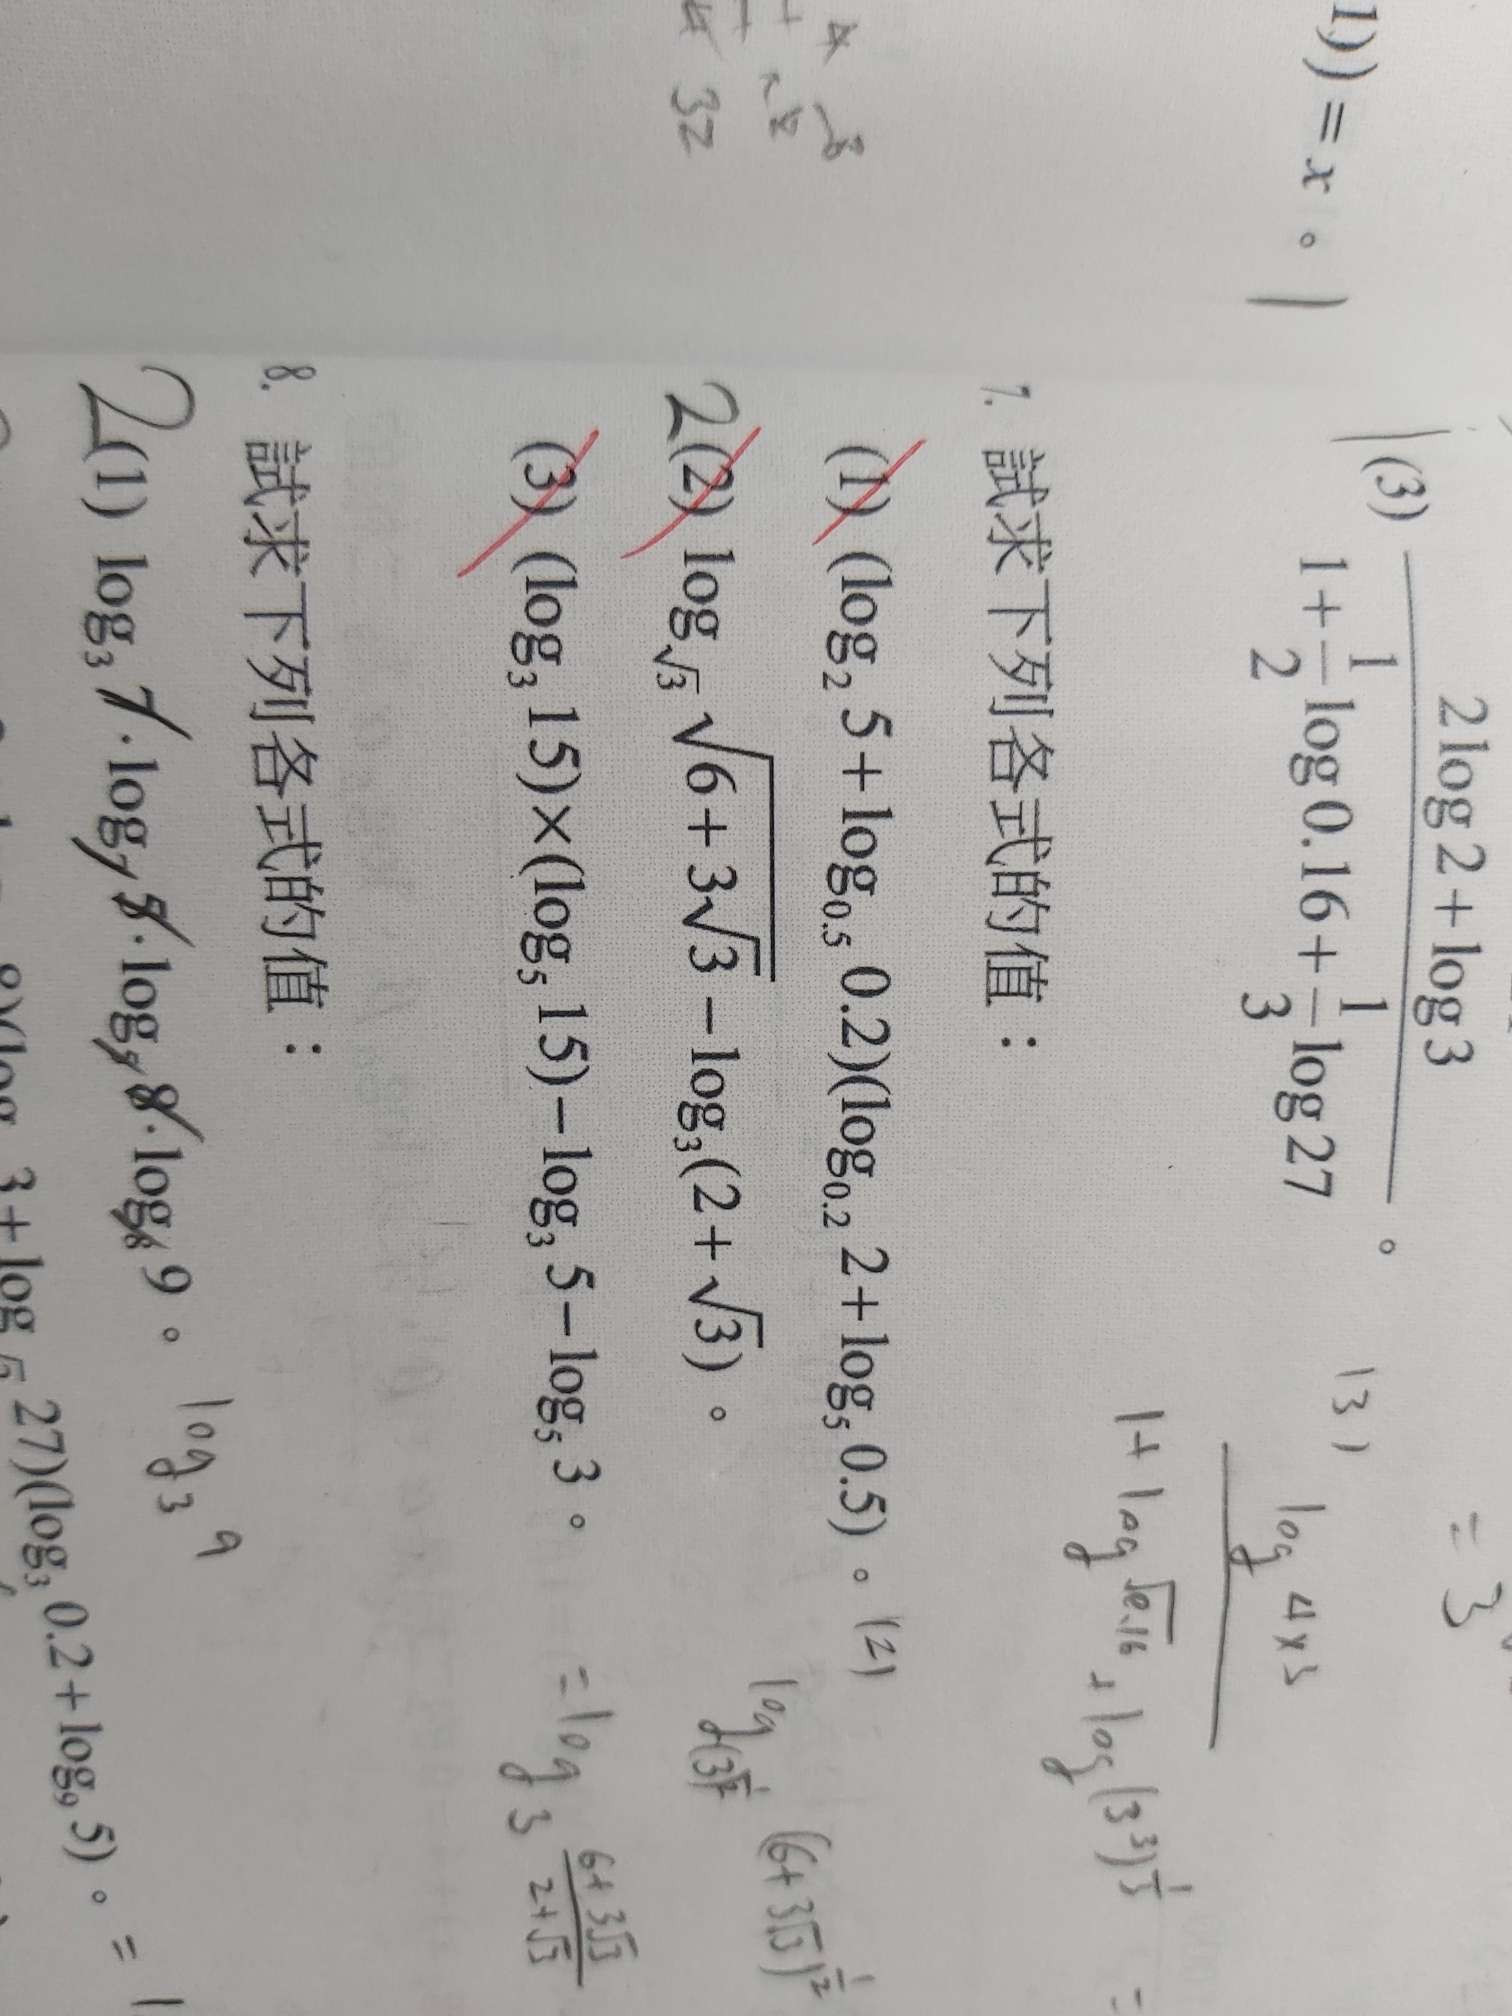 1)) = x。
4
32
= 3
1(3) \frac{2log2+log3}{1+\frac{1}{2}log0.16+\frac{1}{3}log27}。
(3) \frac{log 4×3}{1+log√0.16+log(3³)^{\frac{1}{3}}} =
7. 試求下列各式的值：
(1) (log₂5+log₀.₅0.2)(log₀.₂2+log₅0.5)。
2(2) log_{√3}√(6+3√3)−log₃(2+√3)。
(2) log_{(3)^{\frac{1}{2}}}(6+3√3)^{\frac{1}{2}}
= log₃\frac{6+3√3}{2+√3}
(3) (log₃15)×(log₅15)−log₃5−log₅3。
8. 試求下列各式的值：
2(1) log₃7·log₇5·log₅8·log₈9。
log₃9
3+log_{√3}27)(log₃0.2+log₉5)。 = 1